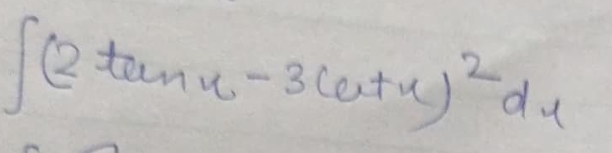 ∫(2 tan x - 3 cot x)² dx